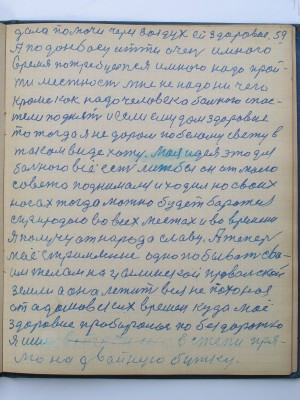 дала помочи через воздух ей здоровье. 59
А по донбасу итти очень и много
время потребуется и много надо прой-
ти местность мне не надо ни чего
кроме как надо человека больного пос-
тели поднять и если ему дам здоровье
то тогда я не даром по белому свету в
таком виде хожу. Моя идея это для
больного всё есть лиш бы он от моего
совета поднимался и ходил на своих
ногах тогда можно будет бороться
с природою во всех местах и во времени
я получу от народа славу. А теперь
моё стремление одно побывать сва-
им телом на целинской
земли а она лежит вся не тронутая
от адамовских времен куда моё
здоровие пробиралось по бездорожью
я шел в степи пря-
мо на двойную бутку.